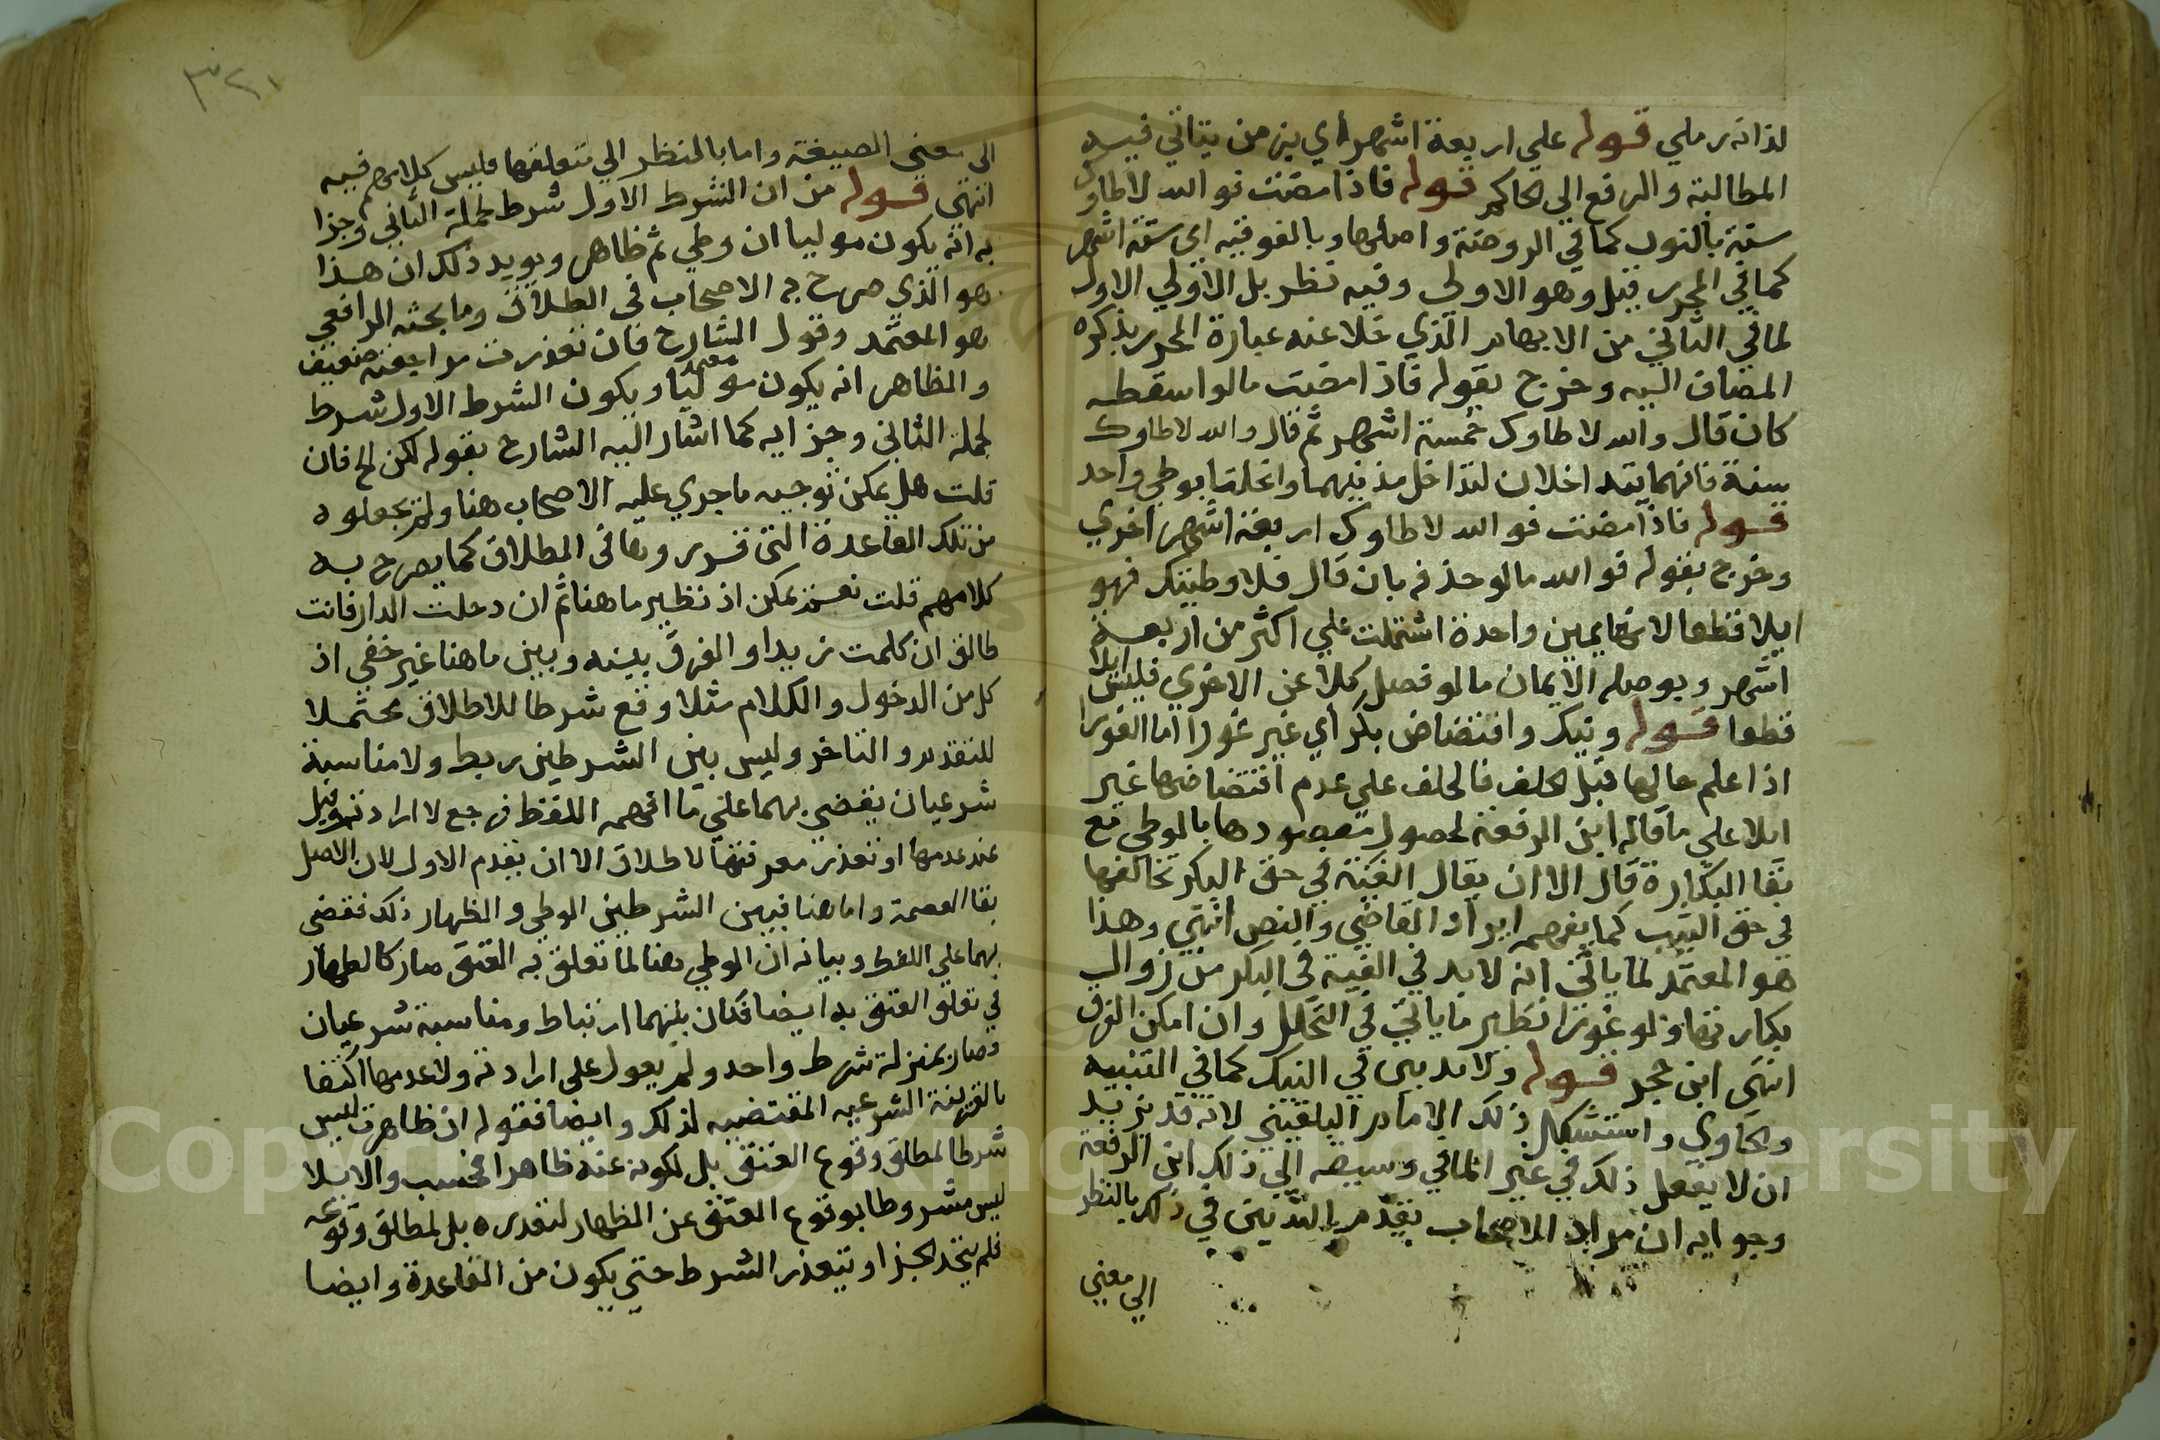 لذاته رملي قوله علي اربعة اشهر أي بزمن يتاتي فيه
المطالبة والرفع الي الحاكم قوله فاذا مضت فوالله لا طاوك
سنة بالنون كما في الروضة واصلها وبالفوقيه اي ستة اشهر
كما في المحرر قيل وهو الاولي وفيه نظر بل الاولي الاول
لما في الثاني من الايهام الذي خلا عنه عبارة المحرر بذكره
المضاف اليه وخرج بقوله فاذا مضت ما لو اسقطه
كان قال والله لا طاوك خمسة اشهر ثم قال والله لا طاوك
سنة فانهما يتداخلان لتداخل مدتيهما وانحلتا بوطي واحد
قوله فاذا مضت فوالله لا طاوك اربعة اشهر اخري
وخرج بقوله فوالله ما لو حذفه بان قال فلا وطيتك فهو
ايلا قطعا لانها يمين واحدة اشتملت علي اكثر من اربعة
اشهر وبوصله الايمان ما لو فصل كلا عن الاخري فليس ايلا
قطعا قوله ونيك وافتضاض بكر أي غير غورا اما الغورا
اذا علم حالها قبل الحلف فالحلف علي عدم افتضاضها غير
ايلا علي ما قاله ابن الرفعة لحصول مقصودها بالوطي مع
بقا البكارة قال الا ان يقال الفئة في حق البكر تخالفها
في حق الثيب كما يفهمه ايراد القاضي والنص انتهي وهذا
هو المعتمد لما ياتي انه لا بد في الفية في البكر من زوال
بكارتها ولو غورا نظير ما ياتي في التحلل وان امكن الفرق
انتهي ابن حجر قوله ولا يدين في النيك كما في التنبيه
والحاوي واستشكل ذلك الامام البلقيني لانه قد يريد
ان لا يفعل ذلك في غير الماتي وسبقه الي ذلك ابن الرفعة
وجوابه ان مراد الاصحاب بعدم التديين في ذلك بالنظر
الي معني
٣٢١
الي معني الصيغة واما بالنظر الي متعلقها فليس كلامهم فيه
انتهي قوله من ان الشرط الاول شرط لجملة الثاني وجزا
به انه يكون موليا ان وطي ثم ظاهر ويويد ذلك ان هذا
هو الذي صرح به الاصحاب في الطلاق وما بحثه الرافعي
هو المعتمد وقول الشارح فان تعذرت مراجعته ضعيف
والظاهر انه يكون موليا ويكون الشرط الاول شرط
لجملة الثاني وجزايه كما اشار اليه الشارح بقوله لكن الخ فان
قلت هل يمكن توجيه ما جري عليه الاصحاب هنا ولم يجعلوه
من تلك القاعدة التي قرروها في الطلاق كما يصرح به
كلامهم قلت نعم يمكن اذ نظير ما هنا ثم ان دخلت الدار فانت
طالق ان كلمت زيدا والفرق بينه وبين ما هنا غير خفي اذ
كل من الدخول والكلام مثلا وقع شرطا للاطلاق محتملا
للتقدم والتاخر وليس بين الشرطين ربط ولا مناسبة
شرعيان يقضي بهما علي ما افهمه اللفظ فرجع لارادته وقيل
عند عدمها او تعذر معرفتها لا طلاق الا ان تقدم الاول لان الاصل
بقا العصمة واما هنا فبين الشرطين الوطي والظهار ذلك فقضي
بهما علي اللفظ وبيانه ان الوطي هنا لما تعلق به العتق صار كالظهار
في تعلق العتق به ايضا فكان بينهما ارتباط ومناسبة شرعيان
وصار بمنزلة شرط واحد ولم يعول علي ارادته ولا عدمها اكتفا
بالقرينة الشرعيه المقتضيه لذلك وايضا فقوله ان ظاهرت ليس
شرطا لمطلق وقوع العتق بل لكونه عنه ظاهرا فحسب والايلا
ليس مشروطا بوقوع العتق عن الظهار لتقدره بل لمطلق وقوعه
فلم يتحد الجزا وتتعذر الشرط حتي يكون من القاعدة وايضا